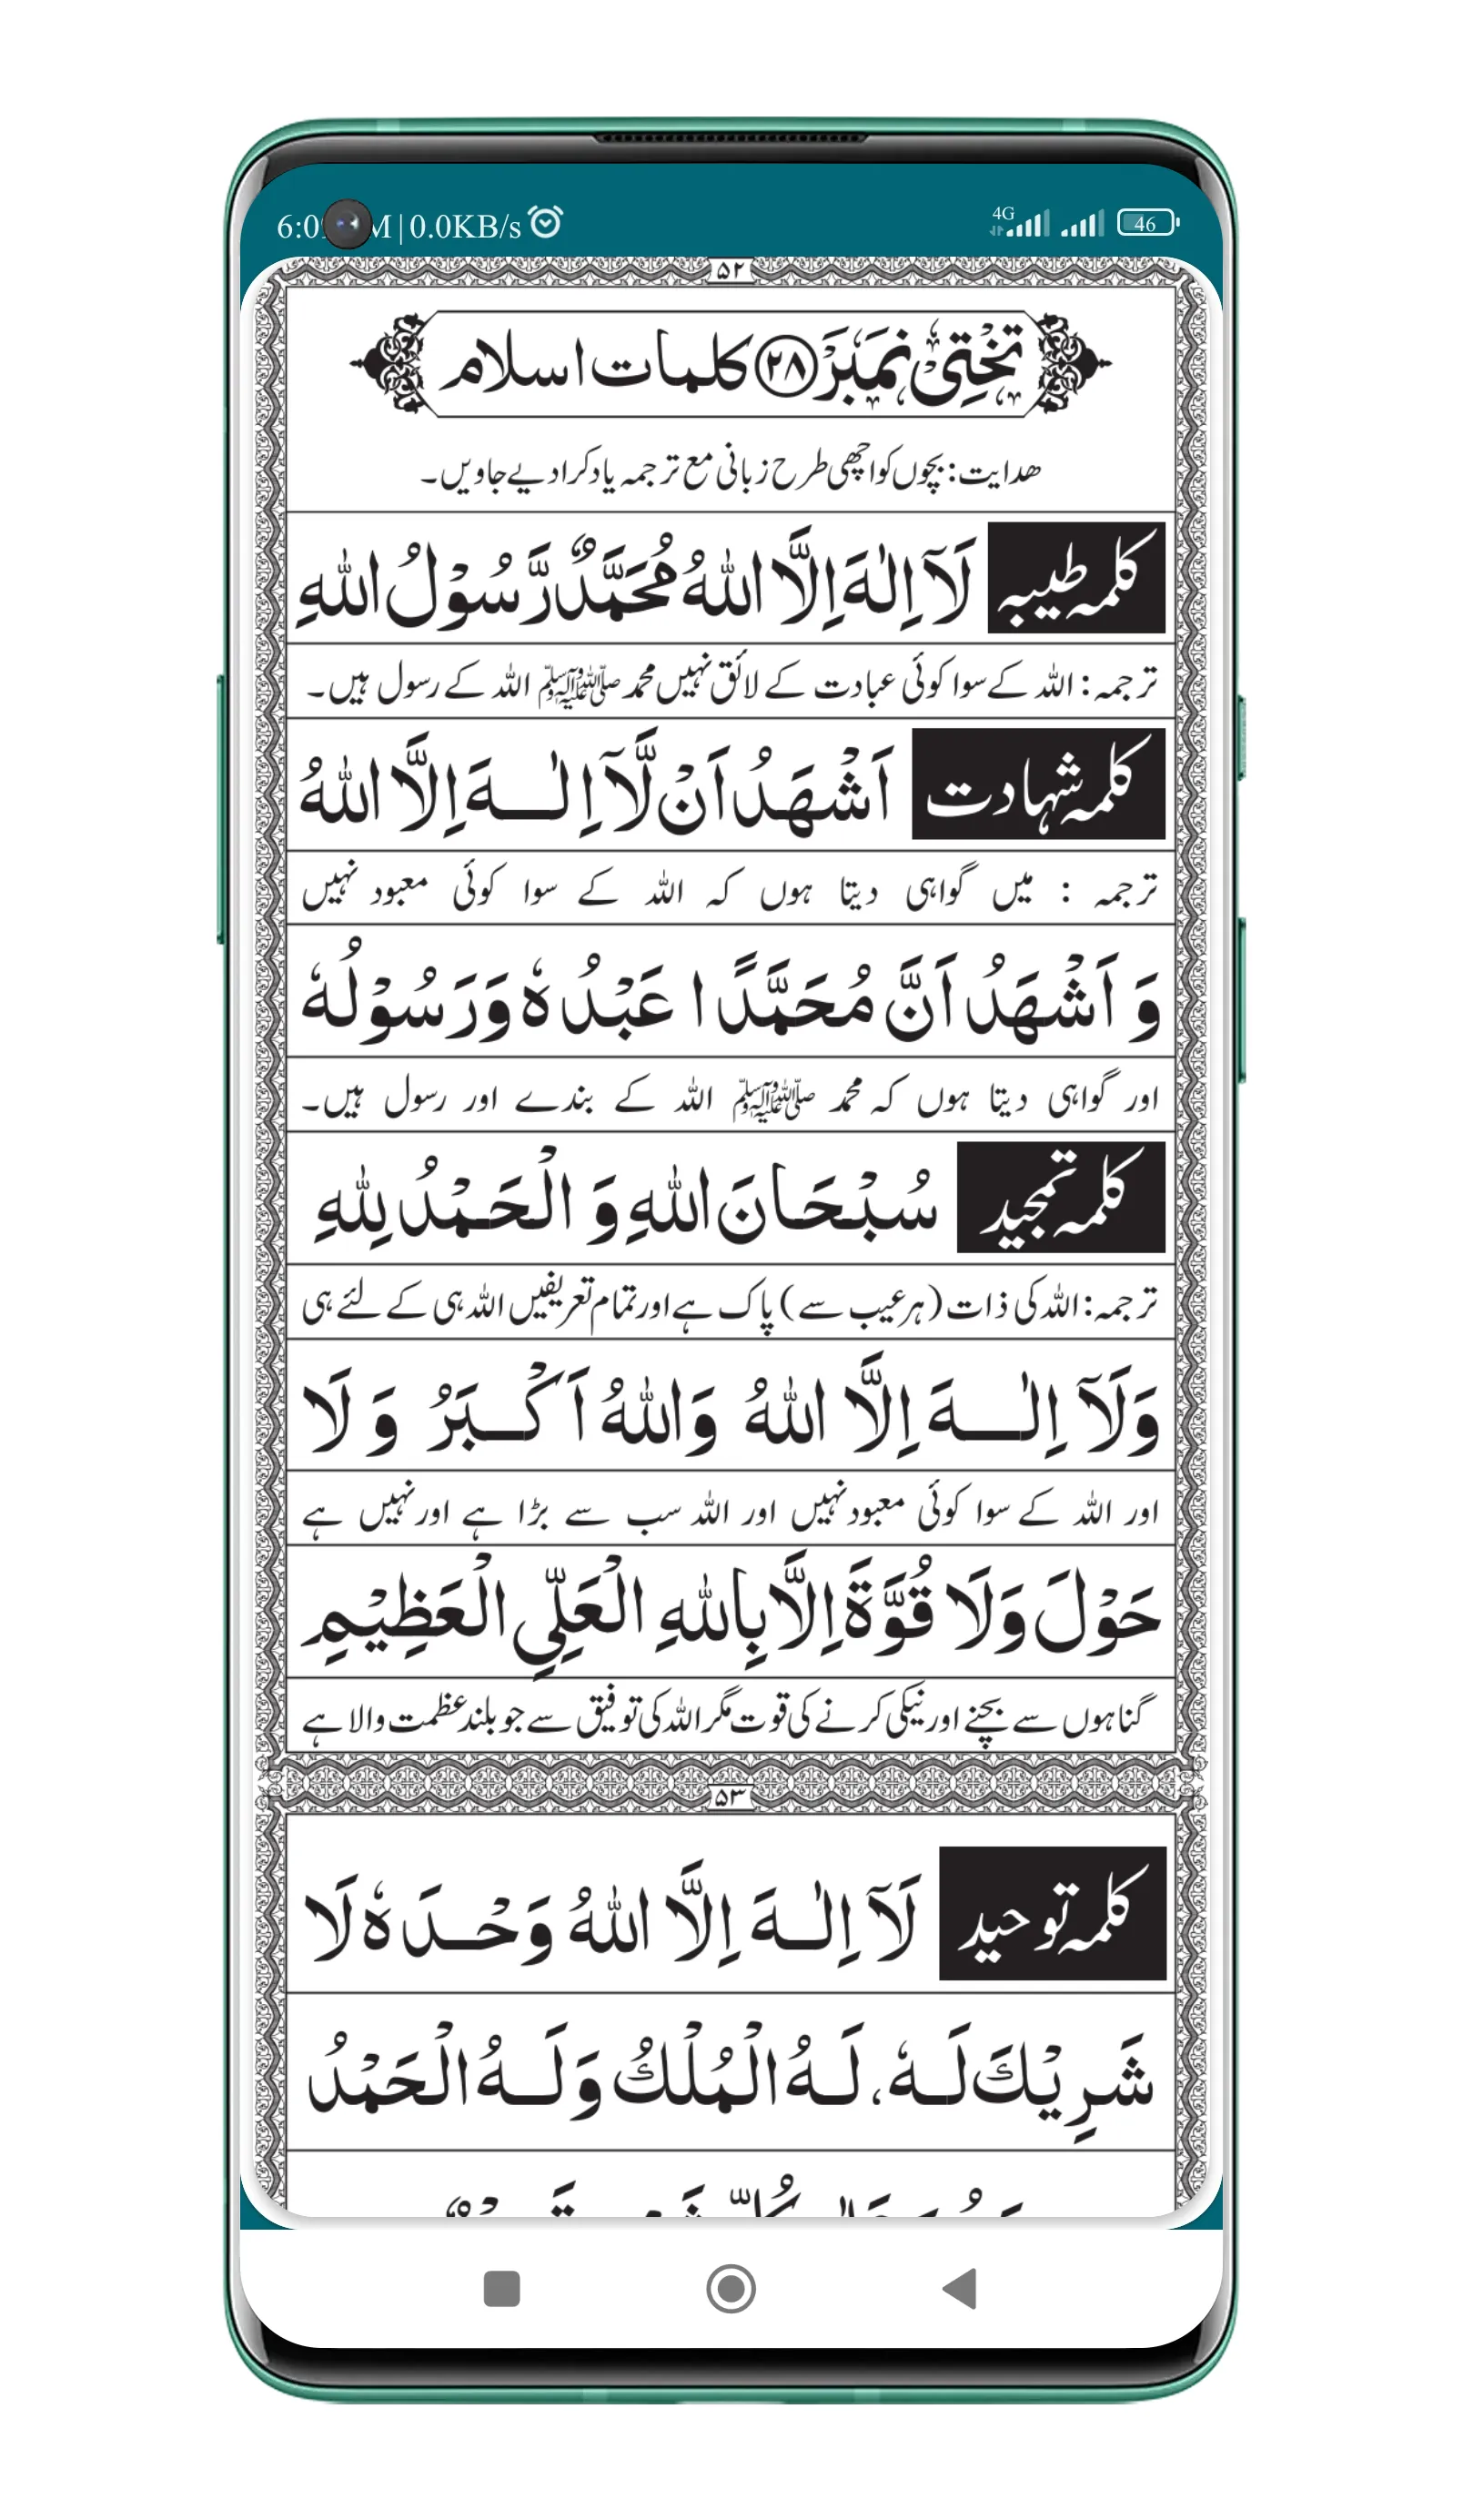 6:0 M | 0.0KB/s 4G 46
۵۲
تَخْتِیْ نَمْبَرْ ۲۸ کلمات اسلام
ھدایت: بچوں کو اچھی طرح زبانی مع ترجمہ یاد کرا دیے جاویں۔
کلمہ طیبہ لَآ اِلٰهَ اِلَّا اللّٰهُ مُحَمَّدٌ رَّسُوْلُ اللّٰهِ
ترجمہ: اللہ کے سوا کوئی عبادت کے لائق نہیں محمد ﷺ اللہ کے رسول ہیں۔
کلمہ شہادت اَشْهَدُ اَنْ لَّآ اِلٰـهَ اِلَّا اللّٰهُ
ترجمہ : میں گواہی دیتا ہوں کہ اللہ کے سوا کوئی معبود نہیں
وَ اَشْهَدُ اَنَّ مُحَمَّدًا عَبْدُهٗ وَرَسُوْلُهٗ
اور گواہی دیتا ہوں کہ محمد ﷺ اللہ کے بندے اور رسول ہیں۔
کلمہ تمجید سُبْحَانَ اللّٰهِ وَ الْحَمْدُ لِلّٰهِ
ترجمہ: اللہ کی ذات (ہر عیب سے) پاک ہے اور تمام تعریفیں اللہ ہی کے لئے ہی
وَلَآ اِلٰـهَ اِلَّا اللّٰهُ وَاللّٰهُ اَكْـبَرُ وَ لَا
اور اللہ کے سوا کوئی معبود نہیں اور اللہ سب سے بڑا ہے اور نہیں ہے
حَوْلَ وَلَا قُوَّةَ اِلَّا بِاللّٰهِ الْعَلِيِّ الْعَظِيْمِ
گناہوں سے بچنے اور نیکی کرنے کی قوت مگر اللہ کی توفیق سے جو بلند عظمت والا ہے
۵۳
کلمہ توحید لَآ اِلٰـهَ اِلَّا اللّٰهُ وَحْـدَهٗ لَا
شَرِيْكَ لَـهٗ، لَـهُ الْمُلْكُ وَلَـهُ الْحَمْدُ